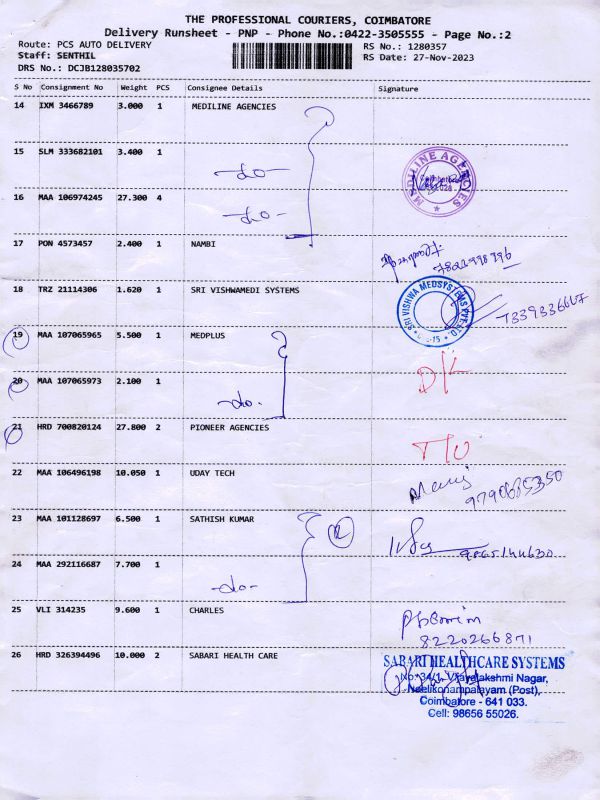 THE PROFESSIONAL COURIERS, COIMBATORE
Delivery Runsheet - PNP - Phone No.:0422-3505555 - Page No.:2
Route: PCS AUTO DELIVERY
RS No.: 1280357
Staff: SENTHIL
RS Date: 27-Nov-2023
DRS No.: DCJB128035702
S No Consignment No Weight PCS Consignee Details Signature
14 IXM 3466789 3.000 1 MEDILINE AGENCIES
15 SLM 333682101 3.400 1 -do-
MEDILINE AGENCIES
16 MAA 106974245 27.300 4 -do-
17 PON 4573457 2.400 1 NAMBI
18 TRZ 21114306 1.620 1 SRI VISHWAMEDI SYSTEMS
SRI VISHWA MEDSYSTEMS PVT. LTD.
19 MAA 107065965 5.500 1 MEDPLUS
D/L
20 MAA 107065973 2.100 1 -do-
21 HRD 700820124 27.800 2 PIONEER AGENCIES
T/O
22 MAA 106496198 10.050 1 UDAY TECH
9790685350
23 MAA 101128697 6.500 1 SATHISH KUMAR
24 MAA 292116687 7.700 1 -do-
25 VLI 314235 9.600 1 CHARLES
8220266871
26 HRD 326394496 10.000 2 SABARI HEALTH CARE
SABARI HEALTHCARE SYSTEMS
No. 34/1, Vijayalakshmi Nagar,
Neelikonampalayam (Post),
Coimbatore - 641 033.
Cell: 98656 55026.